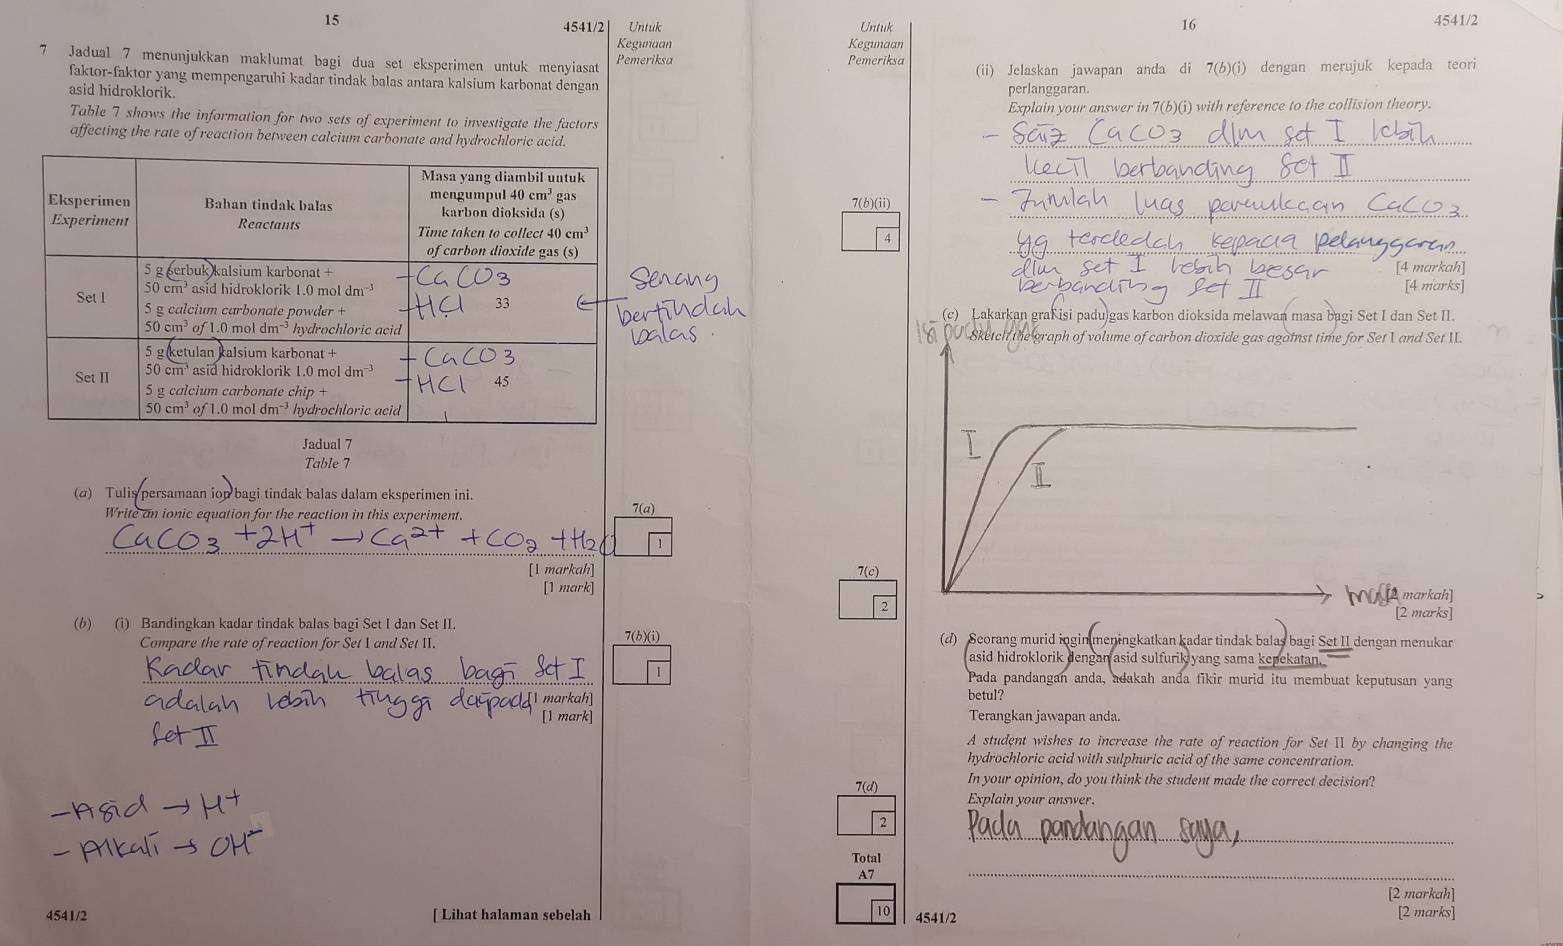 15
4541/2
Untuk
Kegunaan
Pemeriksa
7 Jadual 7 menunjukkan maklumat bagi dua set eksperimen untuk menyiasat
faktor-faktor yang mempengaruhi kadar tindak balas antara kalsium karbonat dengan
asid hidroklorik.
Table 7 shows the information for two sets of experiment to investigate the factors
affecting the rate of reaction between calcium carbonate and hydrochloric acid.
Eksperimen
Experiment
Bahan tindak balas
Reactants
Masa yang diambil untuk
mengumpul 40 cm³ gas
karbon dioksida (s)
Time taken to collect 40 cm³
of carbon dioxide gas (s)
Set I
5 g serbuk kalsium karbonat +
50 cm³ asid hidroklorik 1.0 mol dm⁻³
5 g calcium carbonate powder +
50 cm³ of 1.0 mol dm⁻³ hydrochloric acid
- CaCO3
- HCl
33
← Senang
bertindak
balas.
Set II
5 g ketulan kalsium karbonat +
50 cm³ asid hidroklorik 1.0 mol dm⁻³
5 g calcium carbonate chip +
50 cm³ of 1.0 mol dm⁻³ hydrochloric acid
- CaCO3
- HCl
45
Jadual 7
Table 7
(a) Tulis persamaan ion bagi tindak balas dalam eksperimen ini.
Write an ionic equation for the reaction in this experiment.
CaCO3 + 2H+ → Ca2+ + CO2 + H2O
[1 markah]
[1 mark]
7(a)
1
(b) (i) Bandingkan kadar tindak balas bagi Set I dan Set II.
Compare the rate of reaction for Set I and Set II.
Kadar tindak balas bagi Set I
adalah lebih tinggi daripada
Set II
[1 markah]
[1 mark]
7(b)(i)
1
- Asid → H+
- Alkali → OH-
4541/2
[ Lihat halaman sebelah
Untuk
Kegunaan
Pemeriksa
16
4541/2
(ii) Jelaskan jawapan anda di 7(b)(i) dengan merujuk kepada teori
perlanggaran.
Explain your answer in 7(b)(i) with reference to the collision theory.
- Saiz CaCO3 dlm set I lebih
kecil berbanding Set II
- Jumlah luas permukaan CaCO3
yg terdedah kepada pelanggaran
dlm set I lebih besar
berbanding Set II
[4 markah]
[4 marks]
7(b)(ii)
4
(c) Lakarkan graf isi padu gas karbon dioksida melawan masa bagi Set I dan Set II.
Sketch the graph of volume of carbon dioxide gas against time for Set I and Set II.
Isi padu gas
I
II
masa
[2 markah]
[2 marks]
7(c)
2
(d) Seorang murid ingin meningkatkan kadar tindak balas bagi Set II dengan menukar
asid hidroklorik dengan asid sulfurik yang sama kepekatan.
Pada pandangan anda, adakah anda fikir murid itu membuat keputusan yang
betul?
Terangkan jawapan anda.
A student wishes to increase the rate of reaction for Set II by changing the
hydrochloric acid with sulphuric acid of the same concentration.
In your opinion, do you think the student made the correct decision?
Explain your answer.
Pada pandangan saya,
7(d)
2
[2 markah]
[2 marks]
Total
A7
10
4541/2